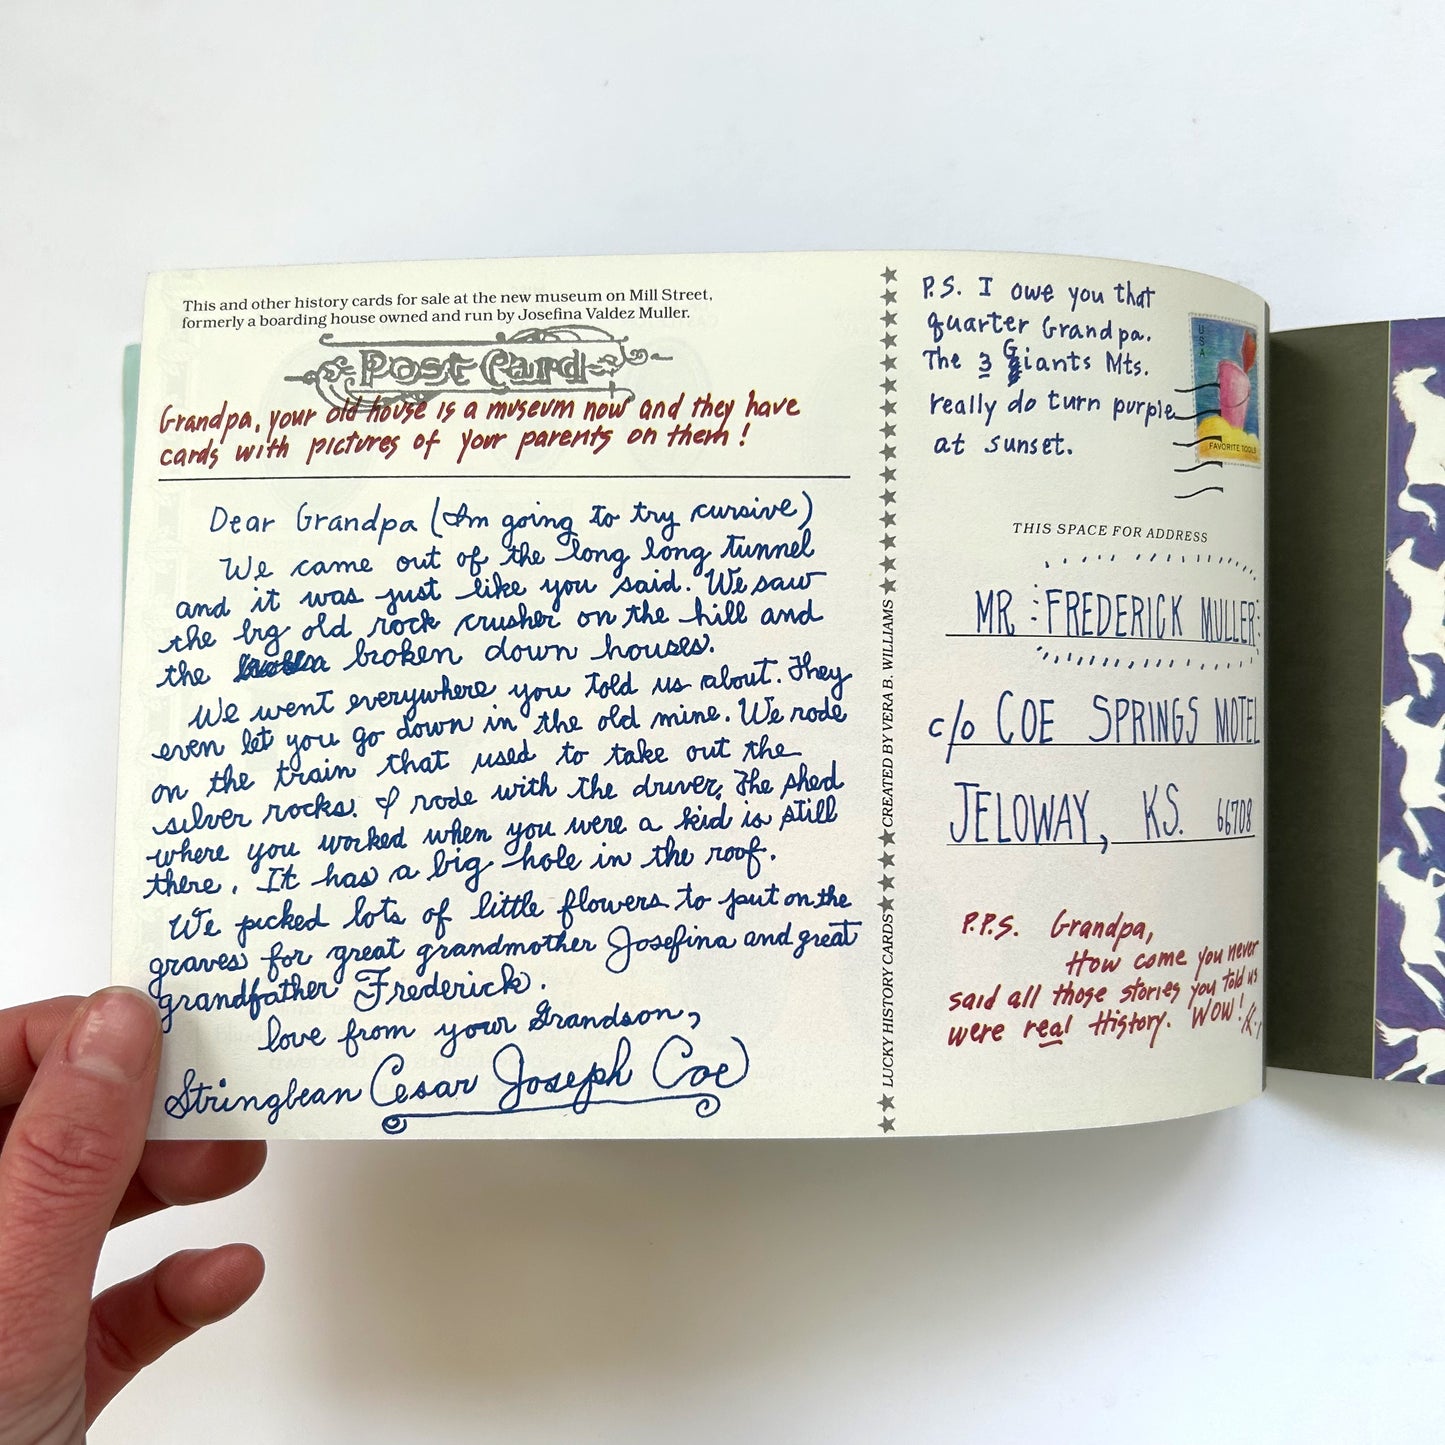 This and other history cards for sale at the new museum on Mill Street,
formerly a boarding house owned and run by Josefina Valdez Muller.
Post Card
Grandpa, your old house is a museum now and they have
cards with pictures of your parents on them!
Dear Grandpa (Im going to try cursive)
We came out of the long long tunnel
and it was just like you said. We saw
the big old rock crusher on the hill and
the broken down houses.
We went everywhere you told us about. They
even let you go down in the old mine. We rode
on the train that used to take out the
silver rocks. I rode with the driver. The shed
where you worked when you were a kid is still
there. It has a big hole in the roof.
We picked lots of little flowers to put on the
graves for great grandmother Josefina and great
grandfather Frederick.
love from your Grandson,
Stringbean Cesar Joseph Coe
LUCKY HISTORY CARDS ★ CREATED BY VERA B. WILLIAMS
P.S. I owe you that
quarter Grandpa.
The 3 Giants Mts.
really do turn purple
at sunset.
USA
FAVORITE TOOLS
THIS SPACE FOR ADDRESS
MR FREDERICK MULLER
c/o COE SPRINGS MOTEL
JELOWAY, KS. 66708
P.P.S. Grandpa,
How come you never
said all those stories you told us
were real History. WOW!